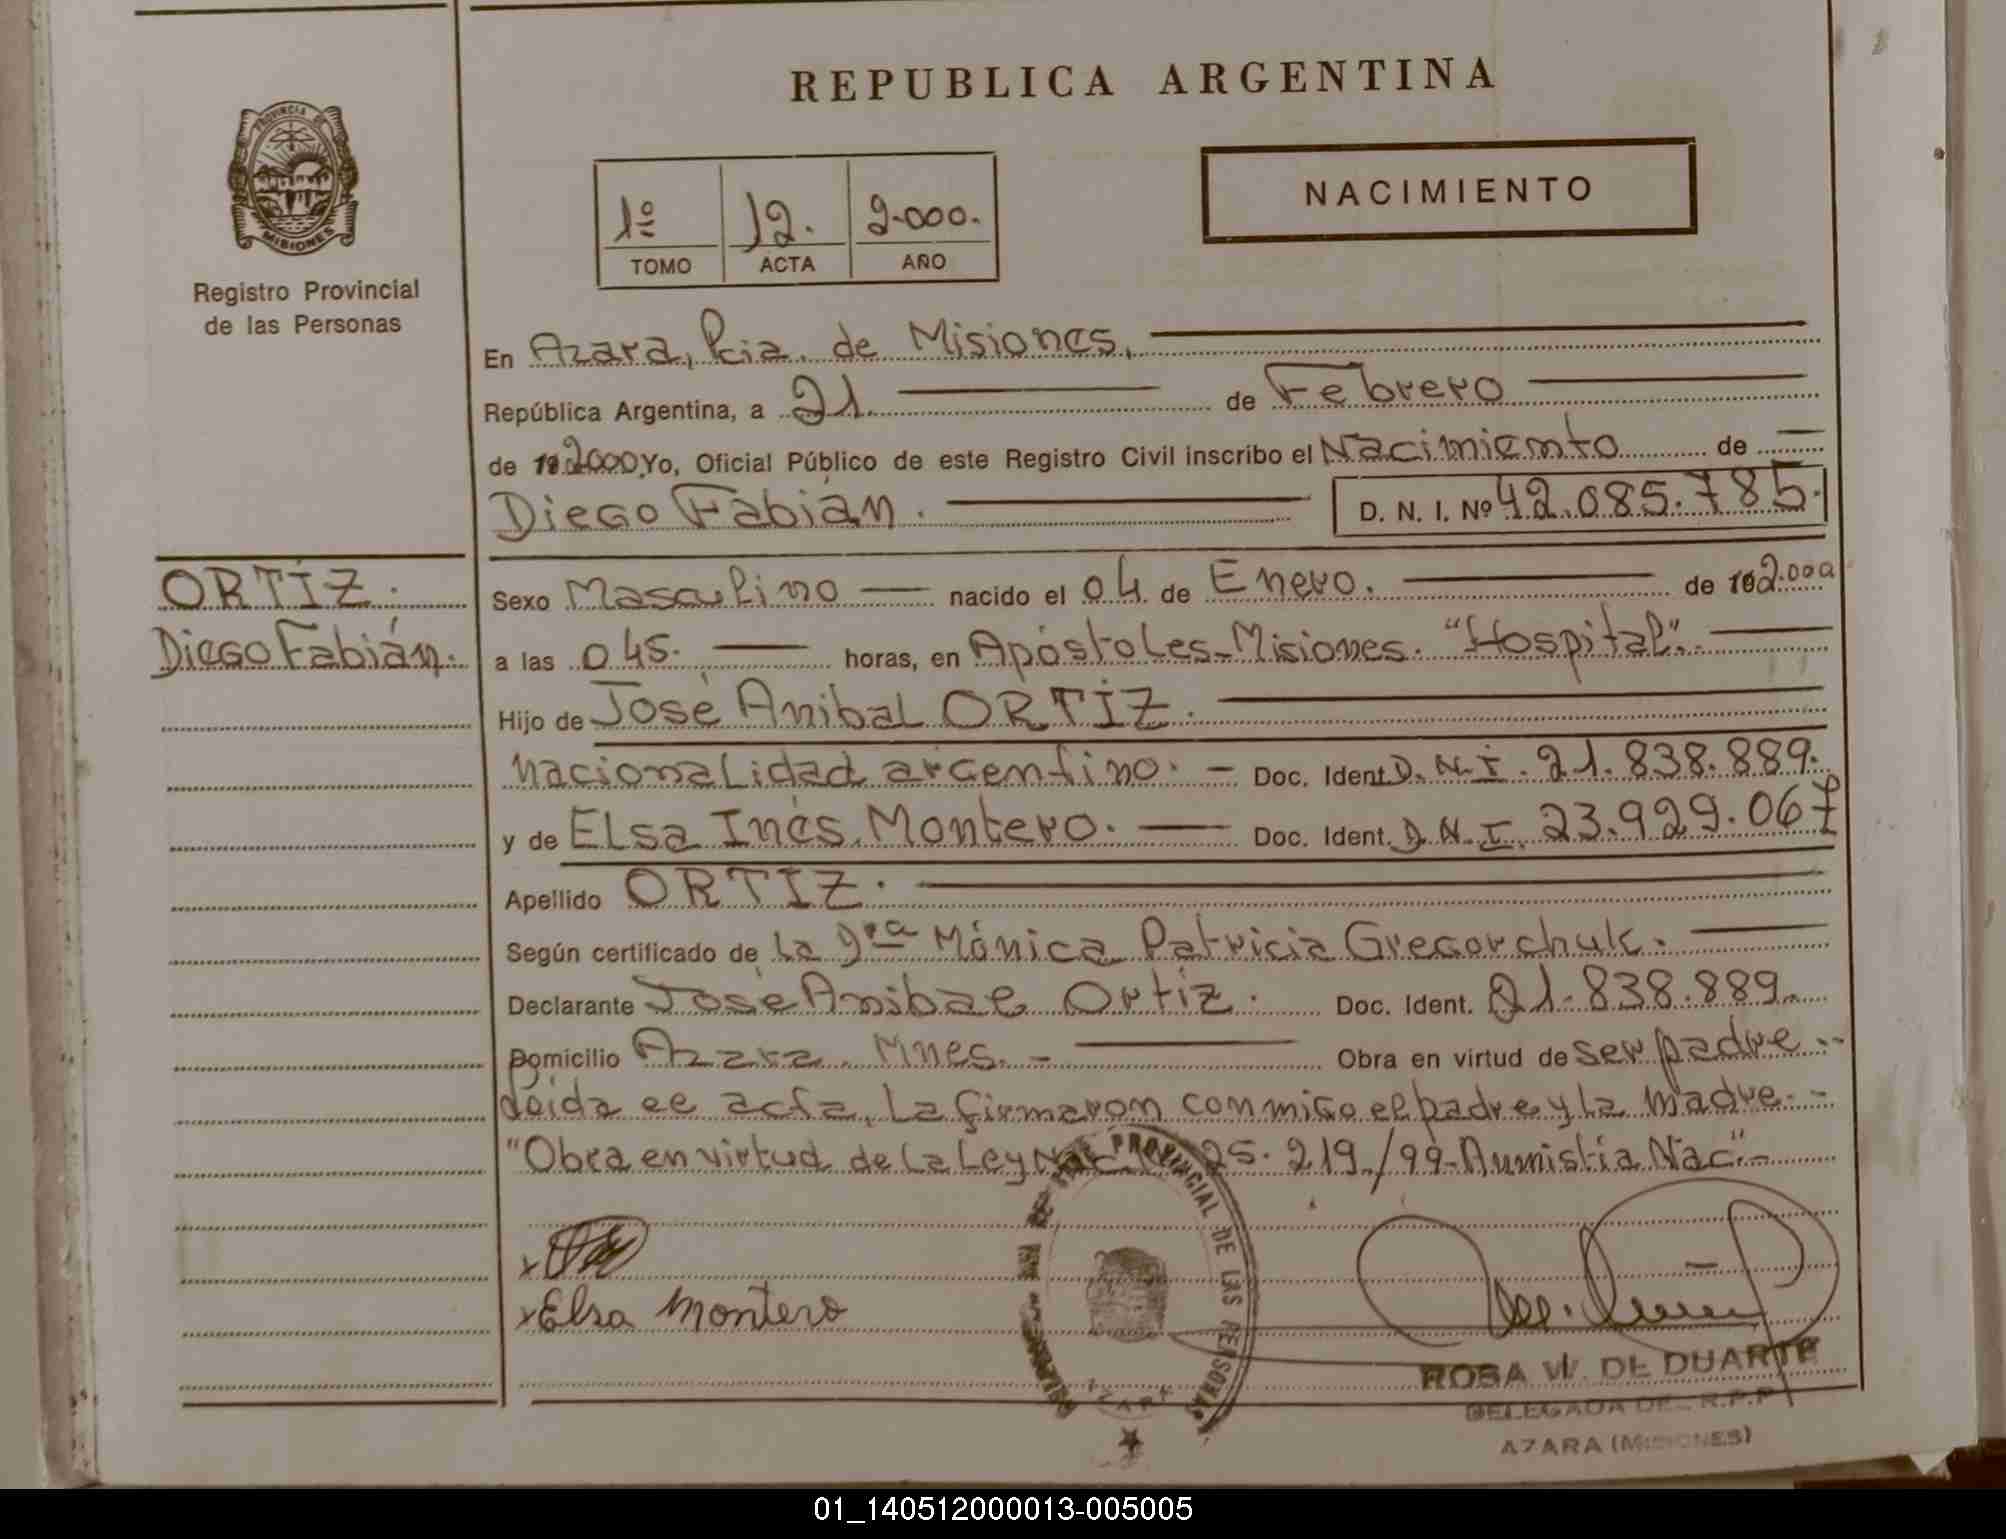 REPUBLICA ARGENTINA
PROVINCIA DE
MISIONES
Registro Provincial
de las Personas
NACIMIENTO
1º 12. 2.000.
TOMO ACTA AÑO
En Azara, Pcia. de Misiones.
República Argentina, a 21. de Febrero
de 192000 Yo, Oficial Público de este Registro Civil inscribo el Nacimiento de
Diego Fabián. D. N. I. Nº 42.085.785.
ORTÍZ.
Diego Fabián.
Sexo Masculino nacido el 04 de Enero. de 192.000
a las 045. horas, en Apóstoles-Misiones. "Hospital".
Hijo de José Anibal ORTÍZ.
nacionalidad argentino. - Doc. Ident. D. N. I. 21.838.889.
y de Elsa Inés Montero. Doc. Ident. D. N. I. 23.929.067
Apellido ORTÍZ.
Según certificado de La Dra Mónica Patricia Gregorchuk.
Declarante José Anibal Ortíz. Doc. Ident. 21.838.889.
Domicilio Azara. Mnes. - Obra en virtud de ser padre
Leída el acta, la firmaron conmigo el padre y la madre. -
"Obra en virtud de la Ley 25.219/99-Aumistía Nac". -
PROVINCIAL DE LAS PERSONAS
x
x Elsa Montero
ROSA W. DE DUARTE
DELEGADA DEL R.P.P
AZARA (MISIONES)
01_140512000013-005005